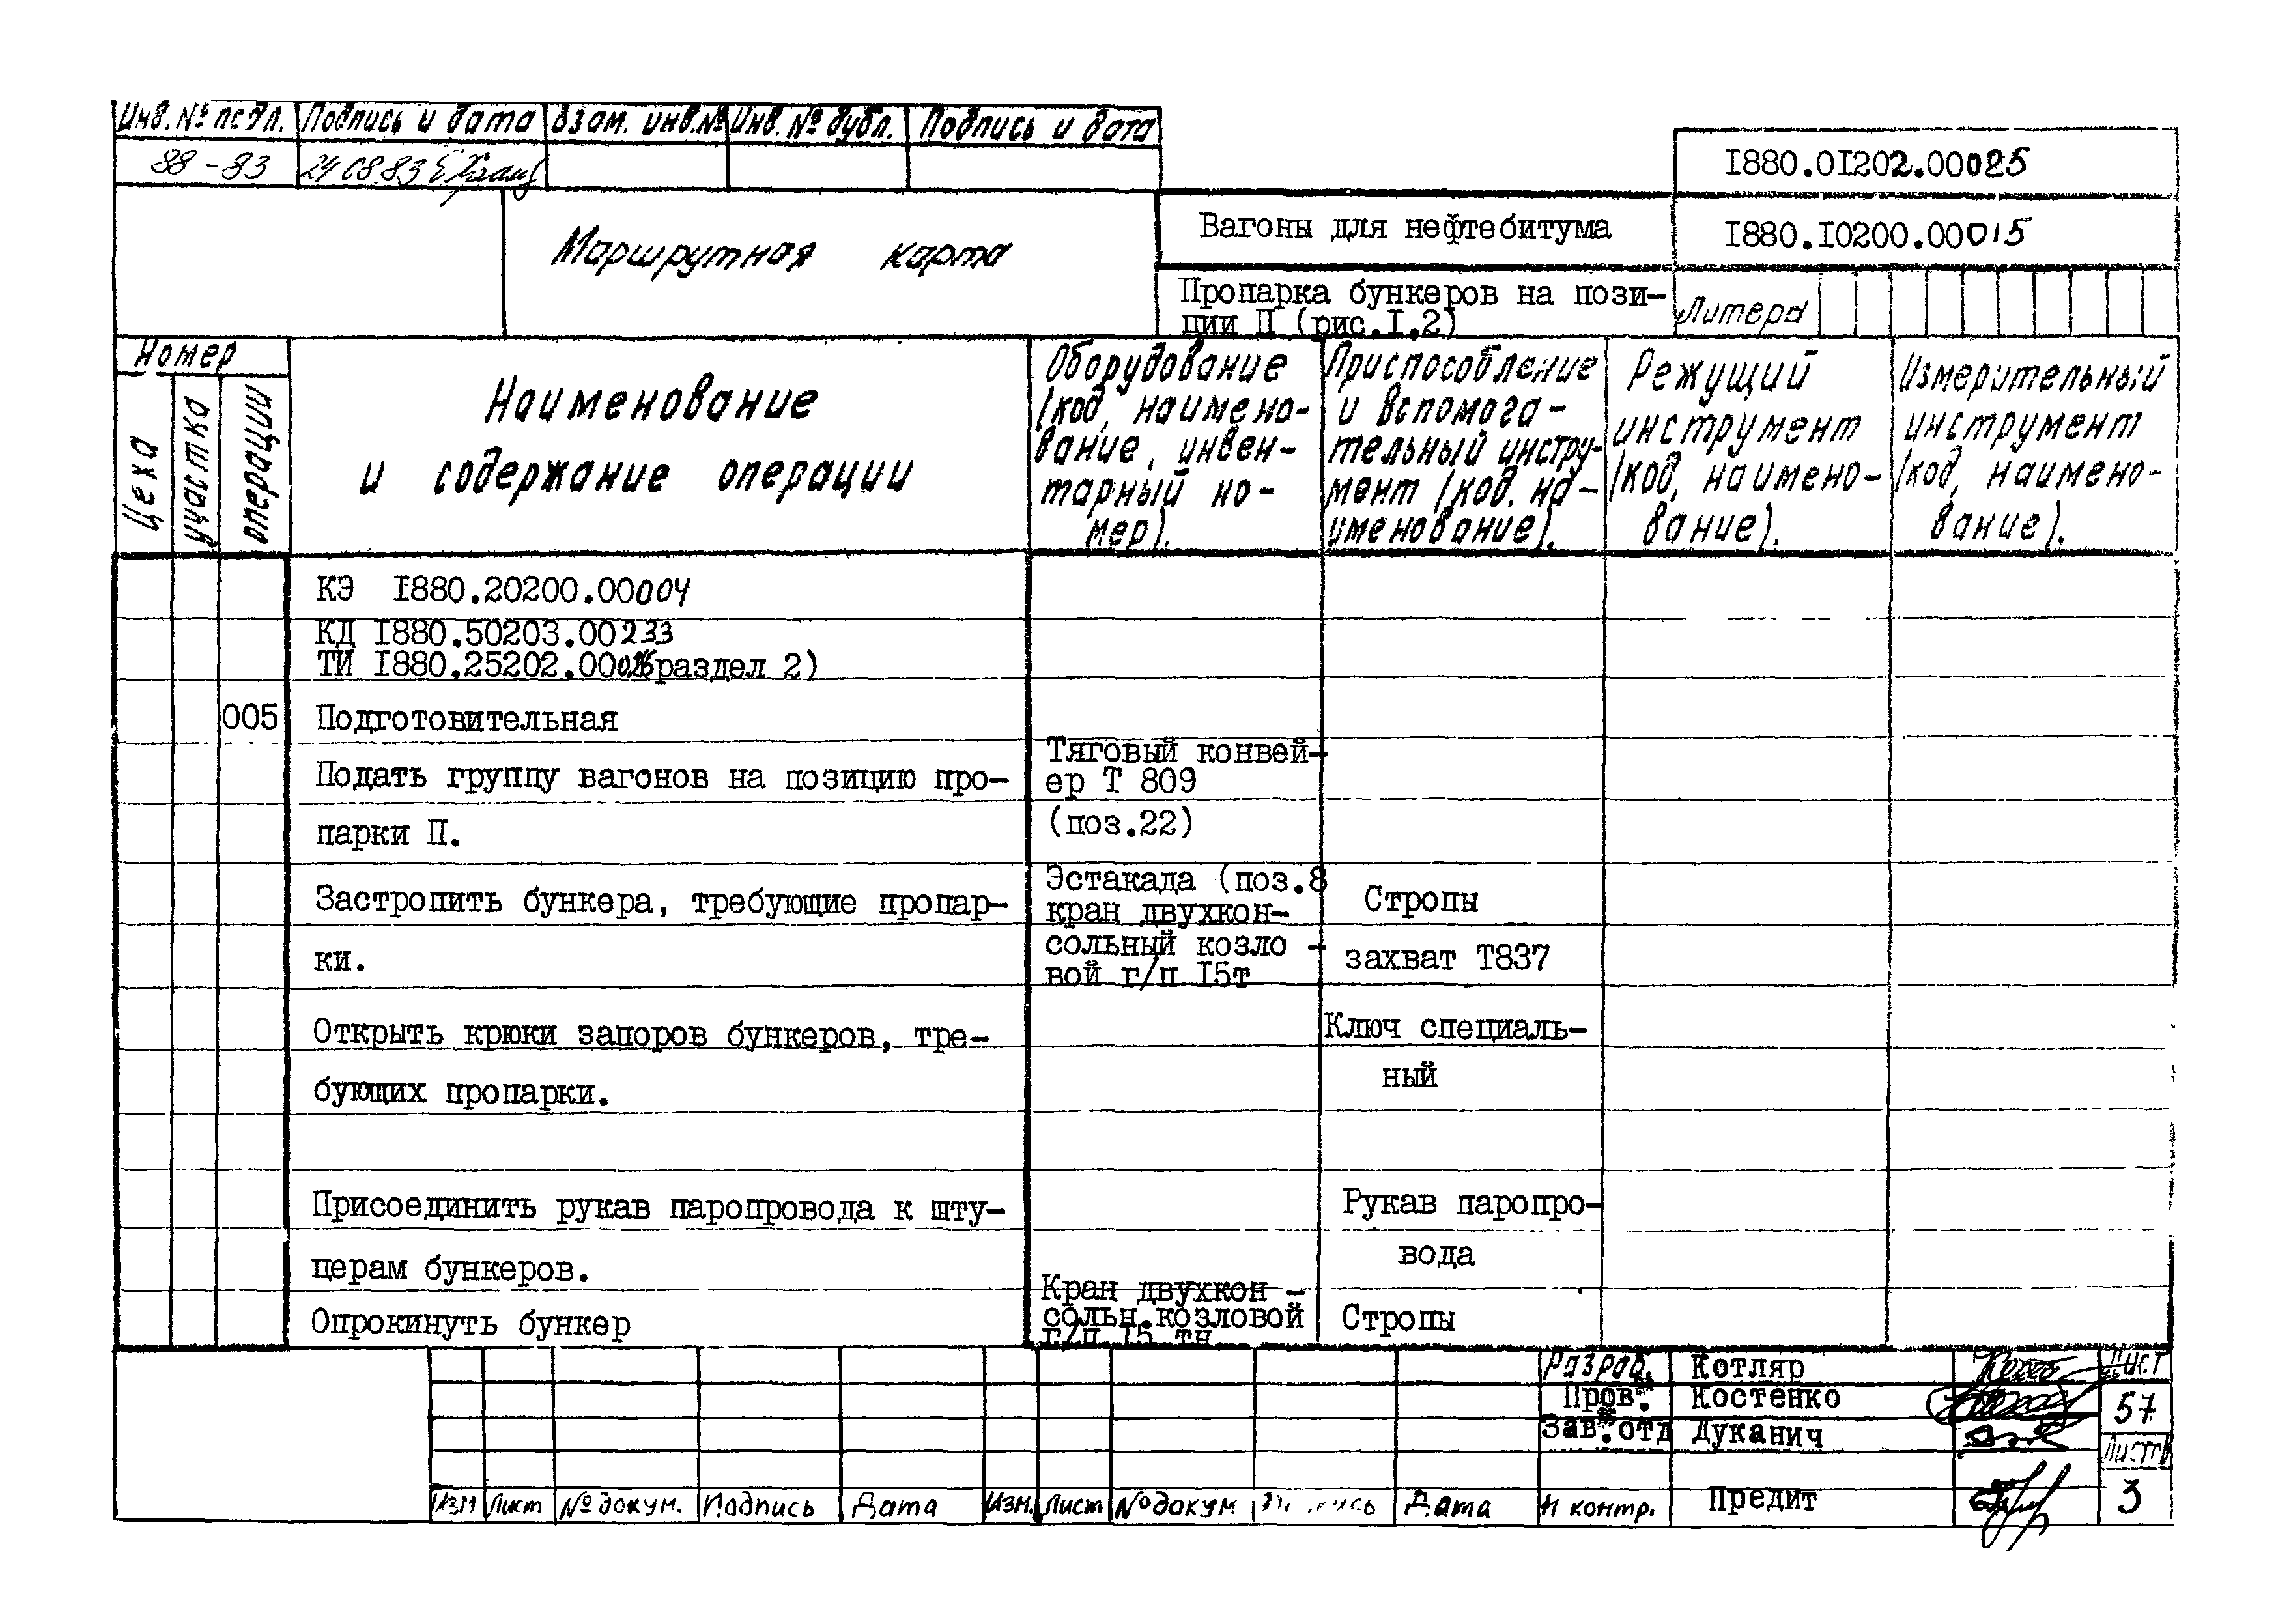 Инв. № подл. Подпись и дата Взам. инв.№ Инв. № дубл. Подпись и дата
88-83 24 08.83
I880.0I202.00025
Маршрутная карта
Вагоны для нефтебитума
I880.I0200.00015
Пропарка бункеров на пози-
ции П (рис.I,2)
Литера
Номер
Цеха
участка
операции
Наименование
и содержание операции
Оборудование
(код, наимено-
вание, инвен-
тарный но-
мер).
Приспособление
и вспомога-
тельный инстру-
мент (код. на-
именование).
Режущий
инструмент
(код, наимено-
вание).
Измерительный
инструмент
(код, наимено-
вание).
КЭ I880.20200.00004
КД I880.50203.00233
ТИ I880.25202.00026(раздел 2)
005 Подготовительная
Подать группу вагонов на позицию про-
парки П.
Тяговый конвей-
ер Т 809
(поз.22)
Застропить бункера, требующие пропар-
ки.
Эстакада (поз.8
кран двухкон-
сольный козло -
вой г/п I5т
Стропы
захват Т837
Открыть крюки запоров бункеров, тре-
бующих пропарки.
Ключ специаль-
ный
Присоединить рукав паропровода к шту-
церам бункеров.
Рукав паропро-
вода
Опрокинуть бункер
Кран двухкон -
сольн.козловой
г/п I5 тн
Стропы
Разраб. Котляр
Лист
Пров. Костенко
57
Зав.отд Дуканич
Листов
Изм Лист № докум. Подпись Дата Изм. Лист № докум Дата Н контр. Предит
3